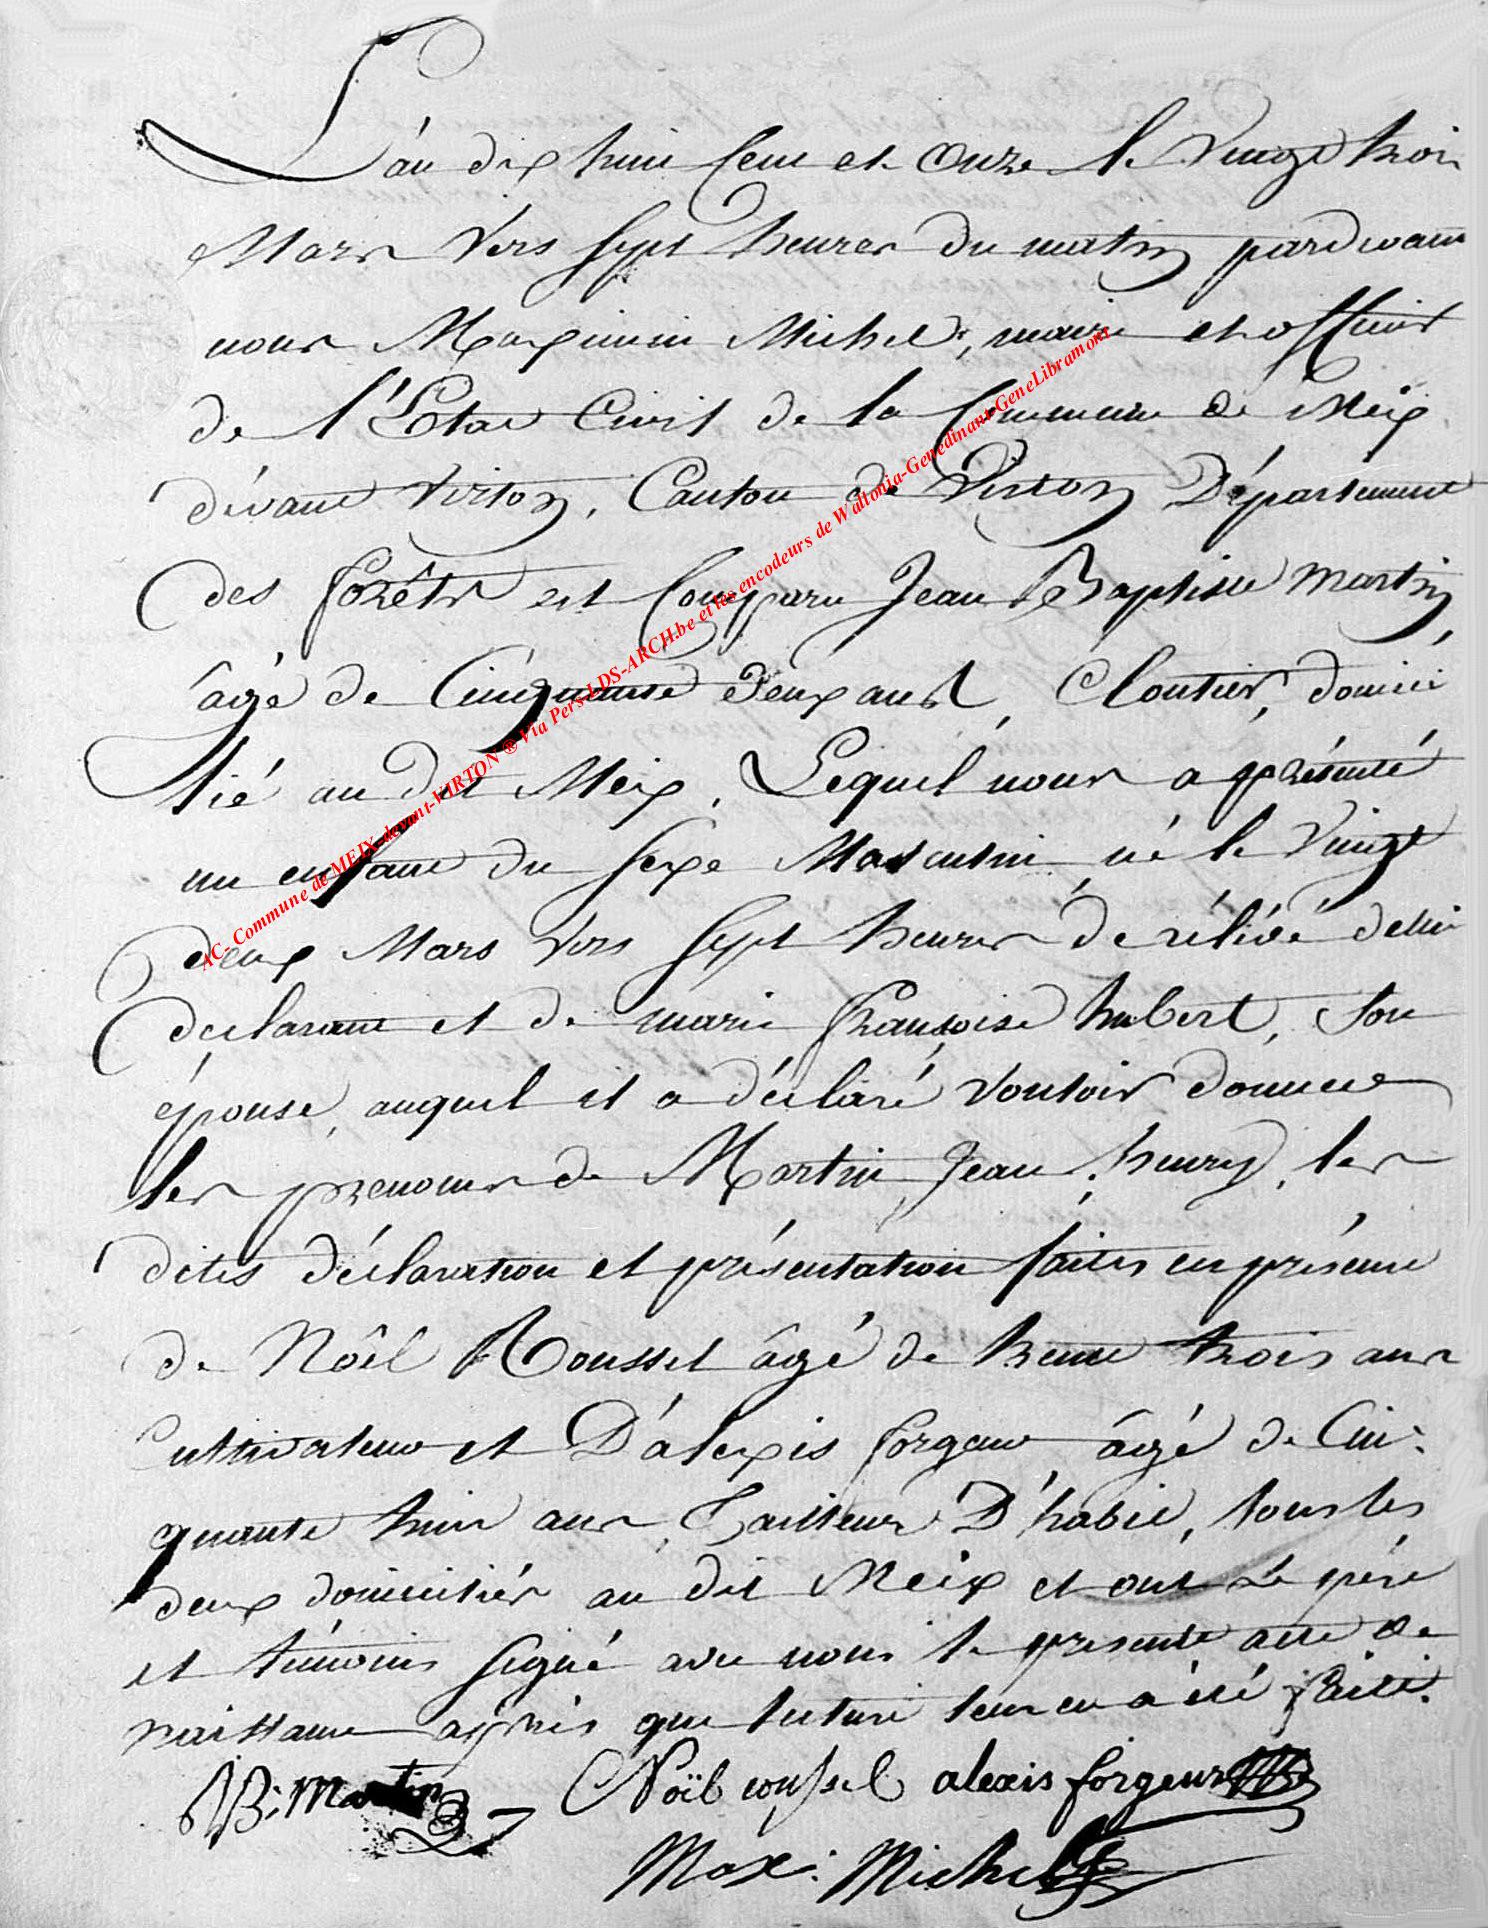 L'an dix huit Cent et Onze le Vingt trois
Mars Vers Sept heures du matin pardevant
nous Maximin Michel, maire et officier
de l'Etat Civil de la Commune de Meix
dévant Virton, Canton de Virton Département
des forêts est Comparu Jean Baptiste Martin,
âgé de Cinquante deux ans, Cloutier, domici
lié au dit Meix, Lequel nous a présenté
un enfant du Sexe Masculin né le Vingt
deux Mars Vers Sept heures de rélévé de lui
declarant et de marie françoise hubert, Son
épouse, auquel il a déclaré Vouloir donner
les prenoms de Martin, Jean, henry, les
dites déclaration et présentation faites en présence
de Nôël Roussel âgé de trente trois ans
Cultivateur et D'alexis forgeur âgé de Cin:
quante huit ans, Tailleur D'habit, tous les
deux domiciliés au dit Meix et ont le père
et témoins Signé avec nous le présente acte de
naissance après que lecture leur en a été faite.
JB: Martin Noël rousel alexis forgeur
Max: Michel
AC- Commune de MEIX-devant-VIRTON ® Via Pers-LDS-ARCH.be et les encodeurs de Waltonia-Genedinant-GeneLibramont